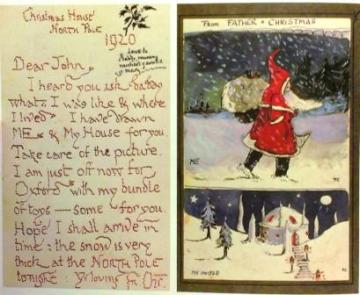 Christmas House
NORTH POLE
1920
Love to
Daddy, mummy
Michael & auntie
Dear John
I heard you ask daddy
what I was like & where
I lived I have drawn
ME & My House for you
Take care of the picture.
I am just off now for
Oxford with my bundle
of toys — some for you.
Hope I shall arrive in
time: the snow is very
thick at the NORTH POLE
tonight: Yr loving Fr. Chr.
From FATHER CHRISTMAS
ME
MY HOUSE